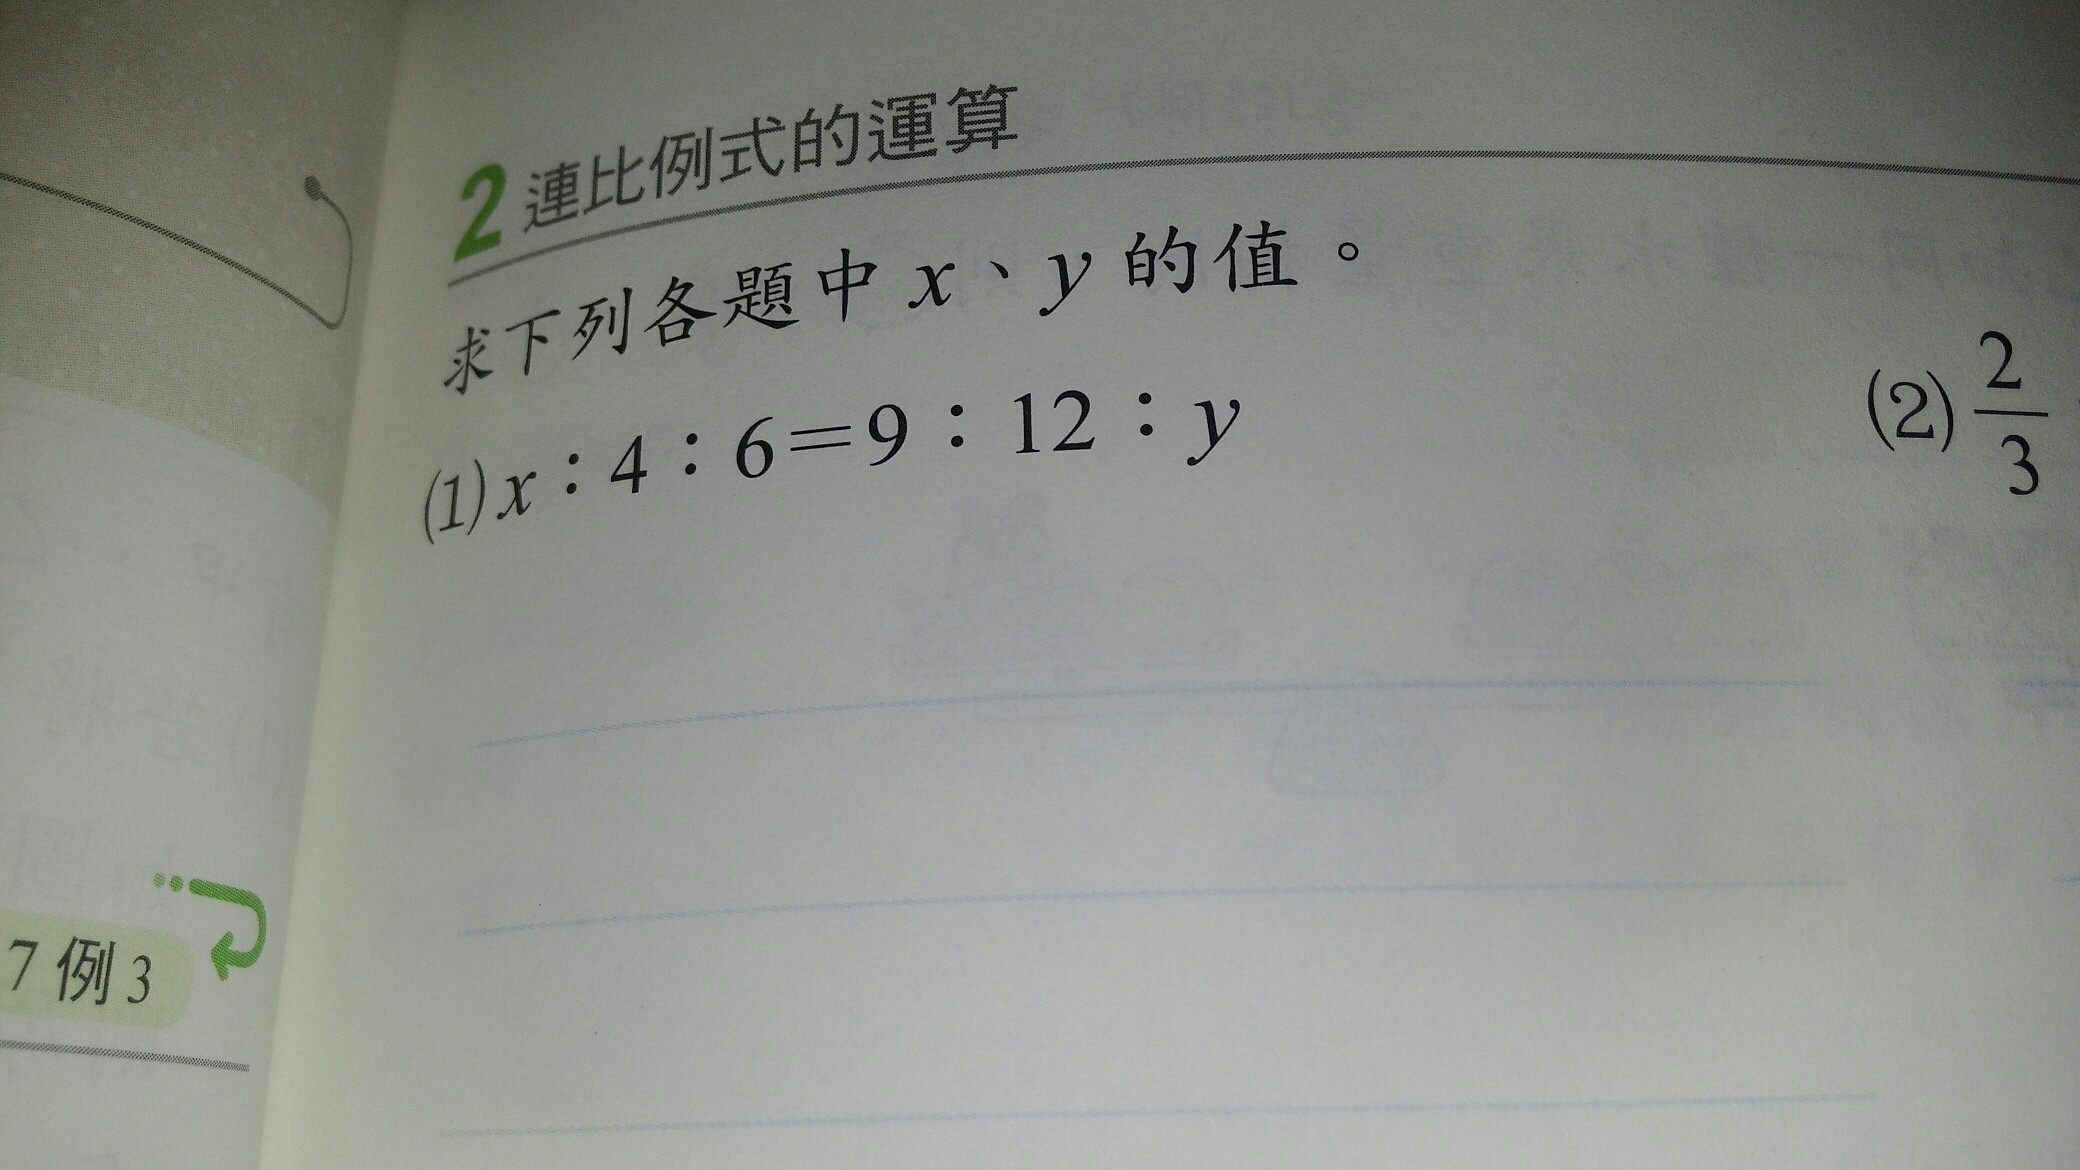 2 連比例式的運算
求下列各題中 x、y 的值。
(1) x：4：6＝9：12：y
(2) 2/3
7 例 3